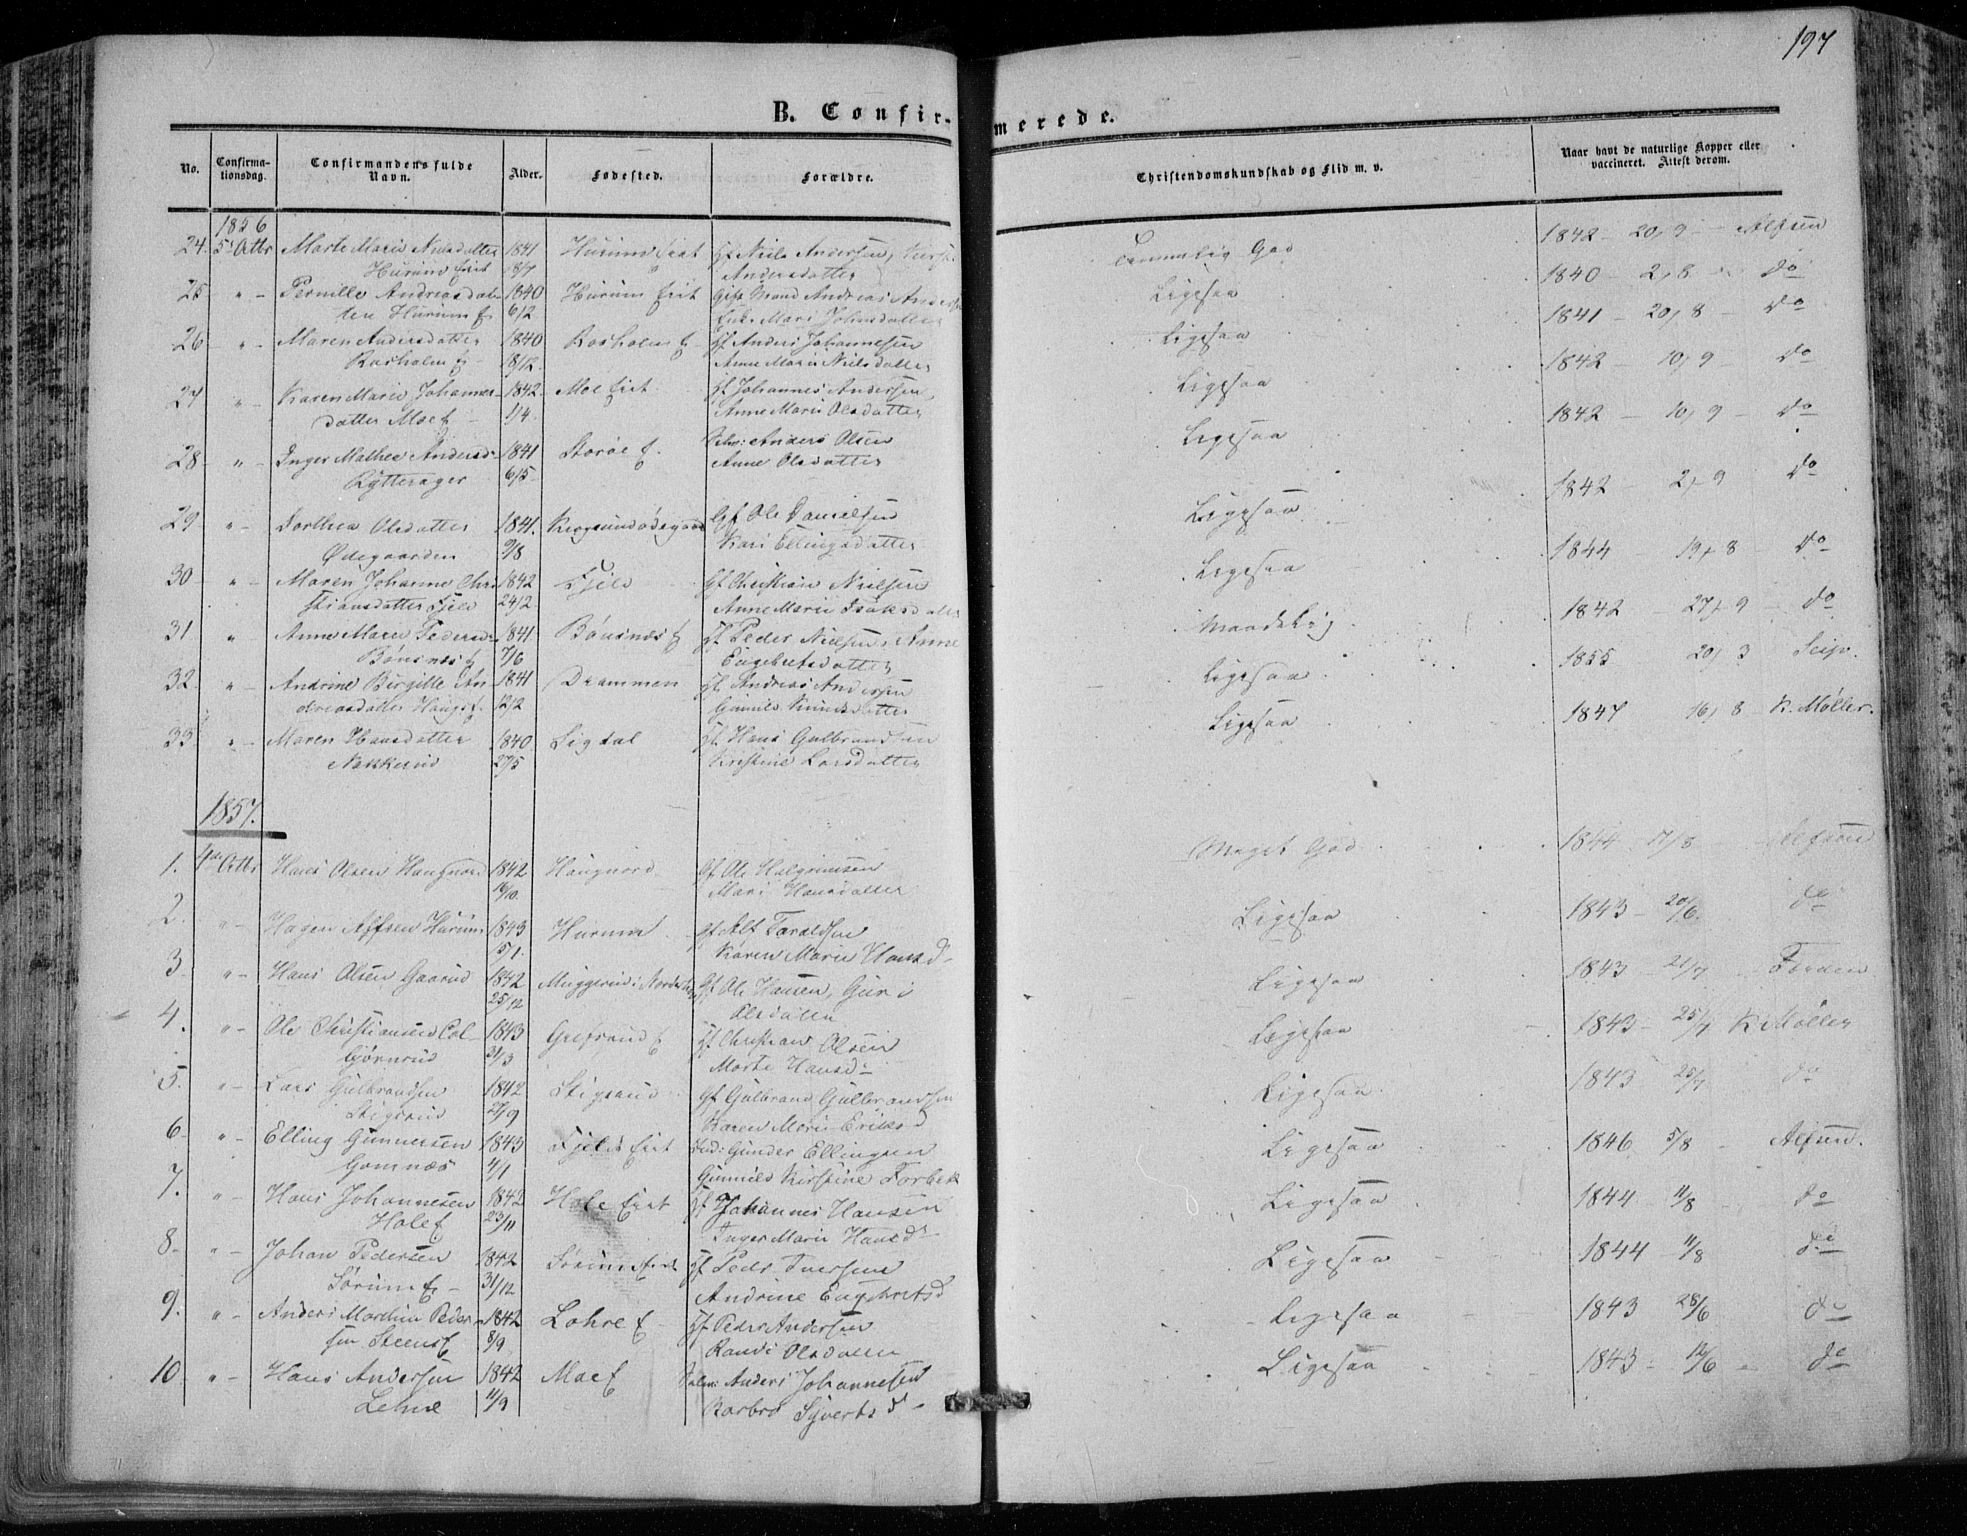 197
B. Confirmerede.
No. Confirmationsdag. Confirmandens fulde Navn. Alder. Fødested. Forældre. Christendomskundskab og Flid m. v. Naar havt de naturlige Kopper eller vaccineret. Attest derom.
1856
24. 5t Octbr Marte Marie Nielsdatter 1841 Hurum Eiet Gf Niels Andersen, Temmelig God 1842 - 20/9 - Alfsen
Hurum Eiet 18/7 Andersdatter
25 " - Pernille Andreasdat- 1840 Hurum Eiet Gift Mand Andreas Anders Ligesaa 1840 - 2/8 - do
ter Hurum E 6/2 Mari Johnsdatter
26 " - Maren Andersdatter 1840 Rosholm E Gf Anders Johannesen Ligesaa 1841 - 20/8 - do
Rosholm E 18/12 Anne Marie Nielsdatter
27 " - Karen Marie Johannes- 1842 Moe Eiet Gf Johannes Andersen, Ligesaa 1842 - 10/9 - do
datter Moe E 1/4 Anne Marie Olsdatter
28 " - Inger Mathea Andersd- 1841 Storøe E. Anders Olsen Ligesaa 1842 - 10/9 - do
Rytterager 6/5 Anne Olsdatter
29 " - Dorthea Olsdatter 1841. Gf Ole Danielsen Ligesaa 1842 - 2/9 do
Ødegaarden 9/8 Kari Ellingsdatter
30 " - Maren Johanne Chri- 1842 Fjeld Gf Christian Nielsen Ligesaa 1844 19/8 - do
stiansdatter Fjeld 24/2 Anne Marie Isaksdatter
31 " Anne Marie Pedersd- 1841 Bønsnæs E Gf Peder Nielsen, Anne Maadelig 1842 - 27/9 - do
Bønsnæs E 7/6 Engebretsdatter
32 " - Andrine Birgitte An- 1841 Drammen Gf Andreas Andersen Ligesaa 1855 20/3 Seip.
dreasdatter Haugs E. 12/2 Gunnild Knudsdatter
33 " - Maren Hansdatter 1840 Sigdal Gf Hans Gulbrandsen Ligesaa 1847 16/8 - K. Møller.
Nakkerud 27/5 Kirstine Larsdatter
1857.
1. 4de Octbr Hans Olsen Haugnord 1842 Haugnord Gf Ole Halgrimsen Meget God 1844 - 17/8 - Alfsen
16/10. Mari Hansdatter
2. " - Hagen Alfsen Hurum 1843 Hurum Gf Alf Taraldsen Ligesaa 1843 - 20/6. do
15/1. Karen Marie Hansd-
3. " - Hans Olsen Gaarud 1842 Muggerud i Gf Ole Hansen, Guri Ligesaa 1843 - 21/7 - Forden
25/12 Olsdatter
4. " - Ole Christiansen Col- 1843 Grefsrud E Gf Christian Olsen Ligesaa 1843 - 25/7 K. Møller
bjørnrud 31/3 Marte Hansd-
5. " - Lars Gulbrandsen 1842 Stigsrud Gf Gulbrand Gulbrandsen Ligesaa 1843 - 25/7 do
Stigsrud 27/9 Karen Marie Eriksd
6 " - Elling Gundersen 1843 Fjeld Eiet Gunder Ellingsen Ligesaa 1846 5/8 - Alfsen.
Gomnæs 4/1 Gunnild Kirstine Torbek
7. " - Hans Johannesen 1842 Hole Eiet Gf Johannes Hansen Ligesaa 1844 - 11/8 do
Hole E 23/11 Inger Marie Hansd-
8. " - Johan Pedersen 1842 Sørum Eiet Gf Peder Iversen Ligesaa 1844 - 11/8 do
Sørum E - 31/12 Andrine Engebretsd
9. " - Anders Martin Peder- 1842 Lohre E Gf Peder Andersen Ligesaa 1843 28/6 do
sen Steens E 8/9 Randi Olsdatter
10 " - Hans Andersen 1842 Moe E Anders Johannesen Ligesaa 1843 - 12/6 - do
Lehne 11/9 Barbro Syverts d-